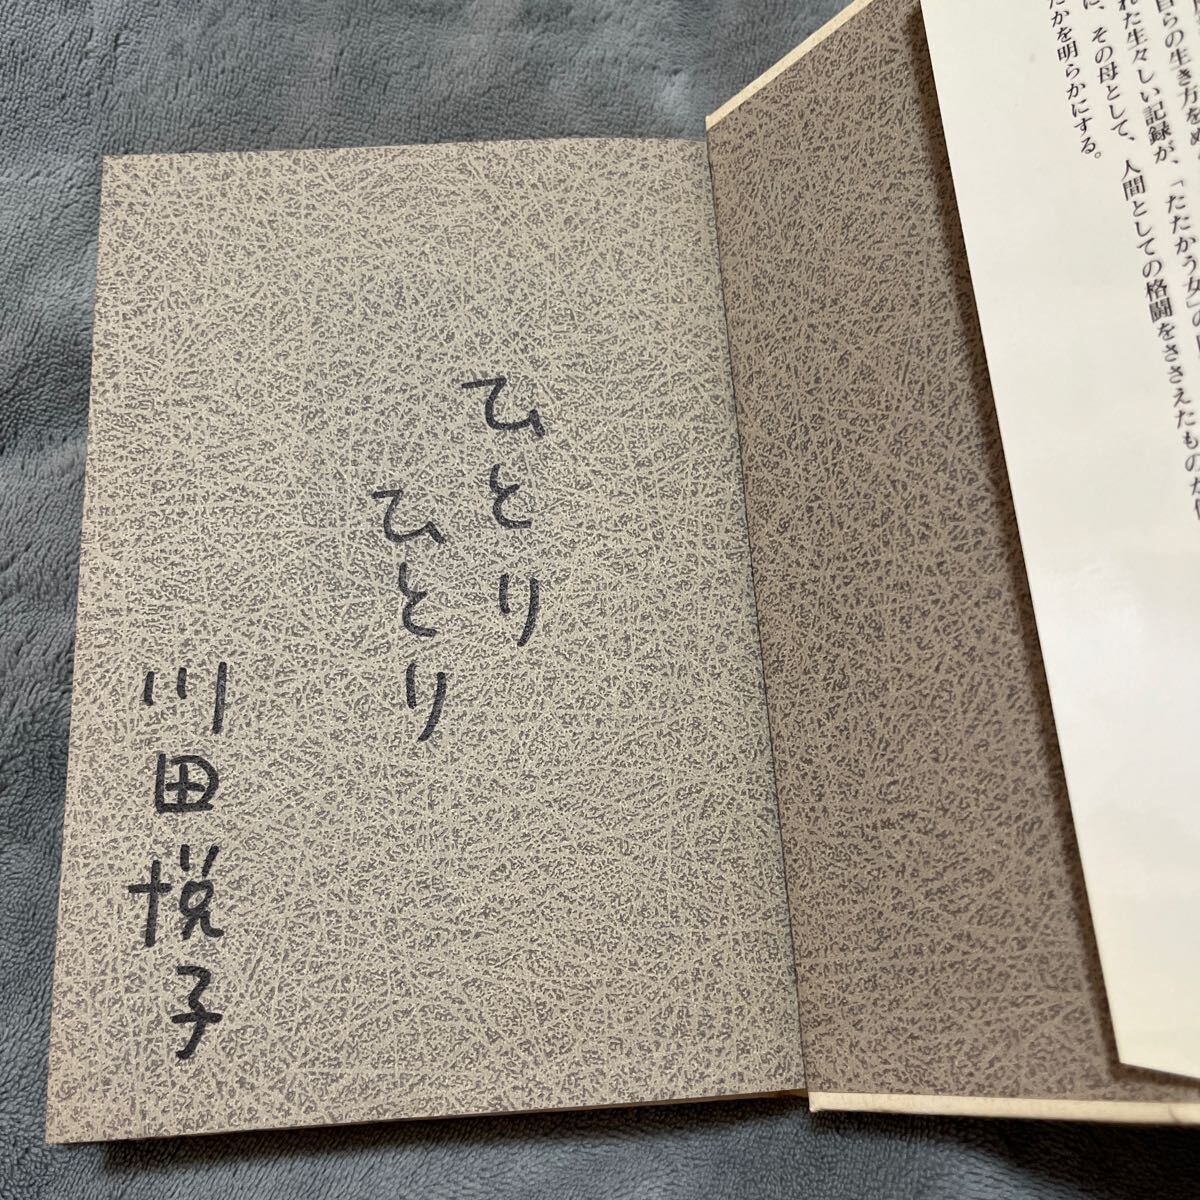 自らの生き方を
れた生々しい記録が、「たたかう女」の
に、その母として、人間としての格闘をささえたものが
たかを明らかにする。
ひとり
ひとり
川田悦子